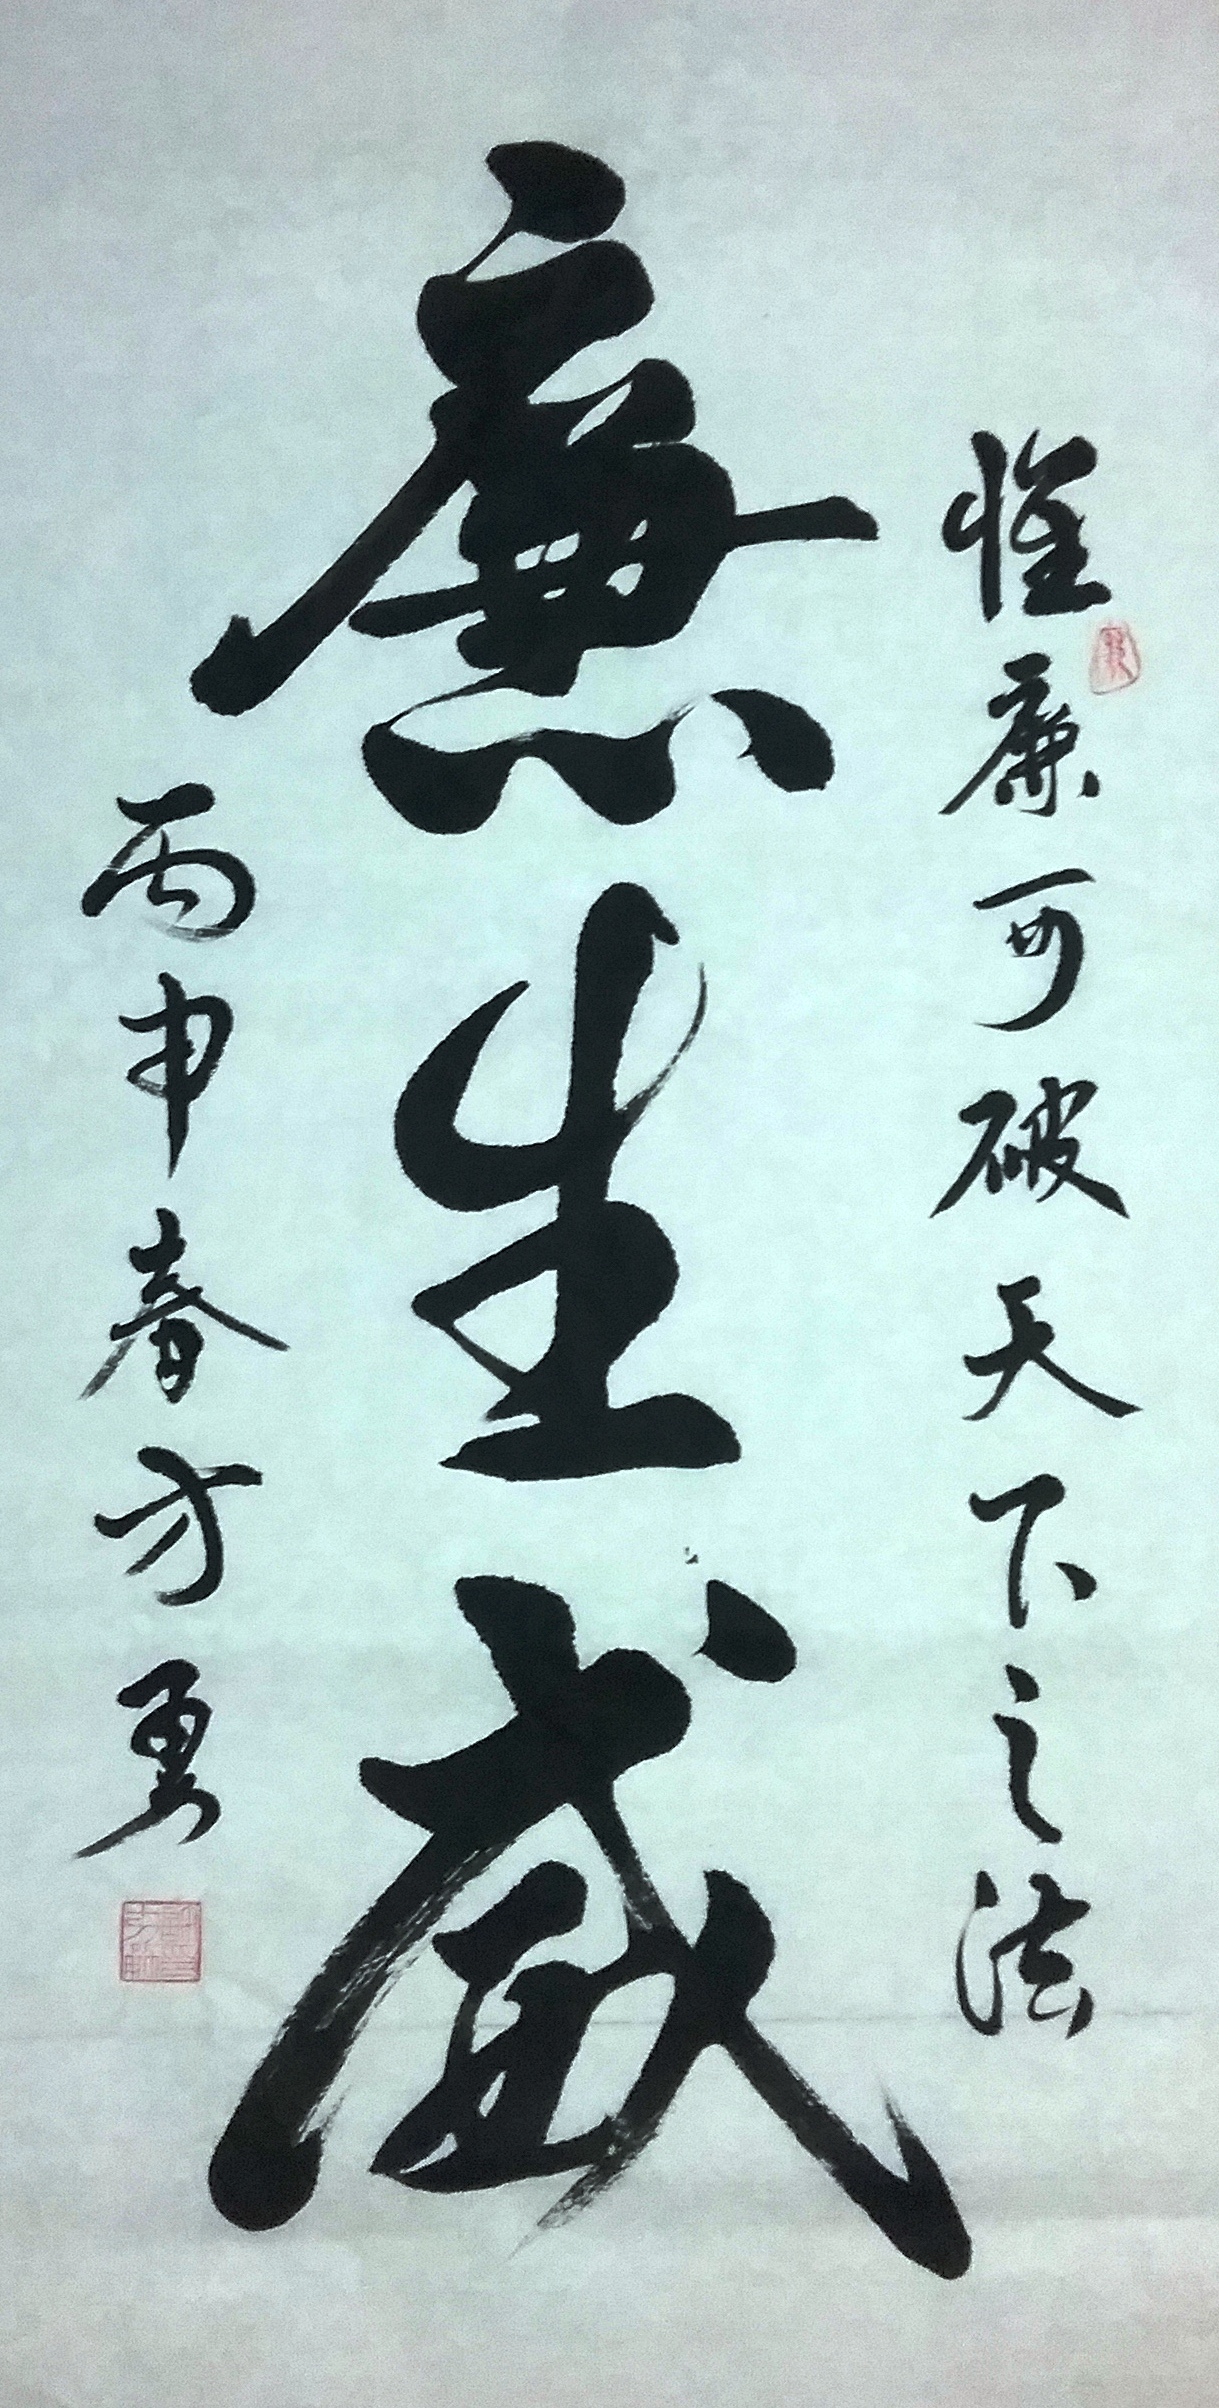 惟廉可破天下之法
廉生威
丙申春方勇